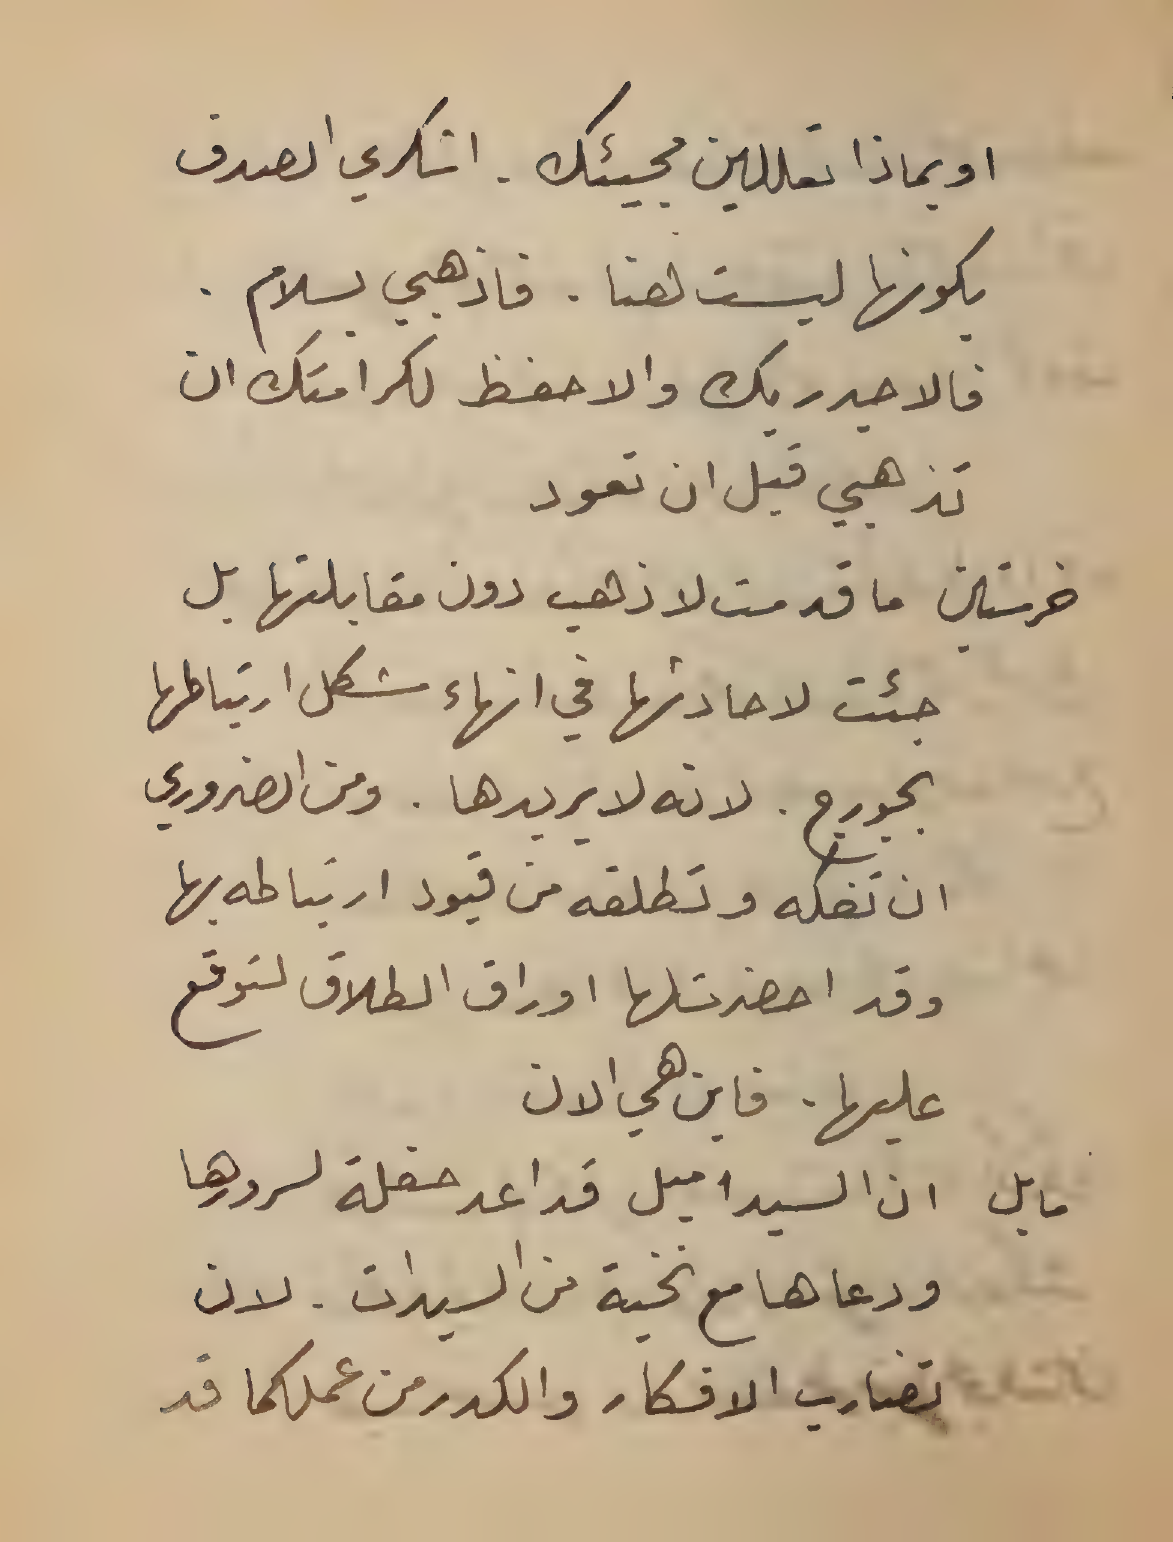 او بماذا تعللين مجيئك . اشكري الصدف
بكونها ليست هنا . فاذهبي بسلام .
فالاجدر بك والاحفظ لكرامتك ان
تذهبي قبل ان تعود
خرستين ما قدمت لاذهب دون مقابلتها بل
جئت لاحادثها في انهاء شكل ارتباطها
بجورج . لانه لا يريدها . ومن الضروري
ان تفكه وتطلقه من قيود ارتباطه بها
وقد احضرت لها اوراق الطلاق لتوقع
عليها . فاين هي الان
مابل ان السيد اميل قد اعد حفلة لسرورها
ودعاها مع نخبة من السيدات . لان
تضارب الافكار والكدر من عملكما قد